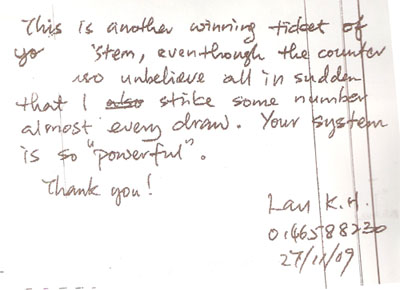 This is another winning ticket of
yo 'stem, eventhough the counter
unbelieve all in sudden
that I also strike some number
almost every draw. Your system
is so "powerful".
Thank you!
Lau K.H.
0146588230
27/11/09